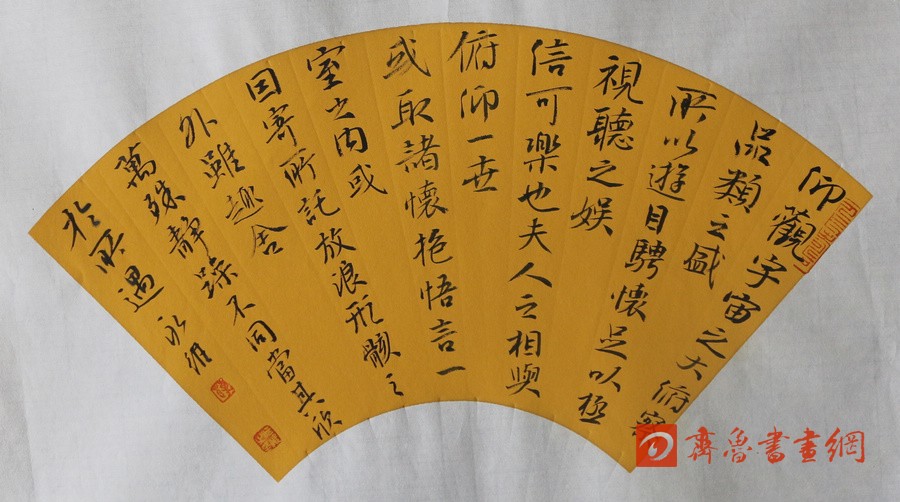 仰觀宇宙之大俯察
品類之盛
所以遊目騁懷足以極
視聽之娛
信可樂也夫人之相與
俯仰一世
或取諸懷抱悟言一
室之內或
因寄所託放浪形骸之
外雖趣舍
萬殊靜躁不同當其欣
於所遇 永維
齊魯書畫網